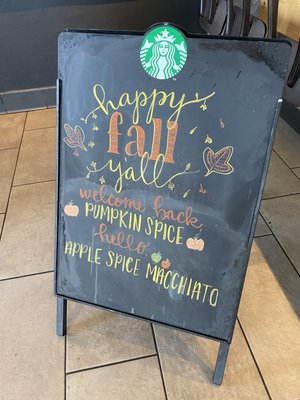 happy
fall
y'all
welcome back,
PUMPKIN SPICE
hello,
APPLE SPICE MACCHIATO